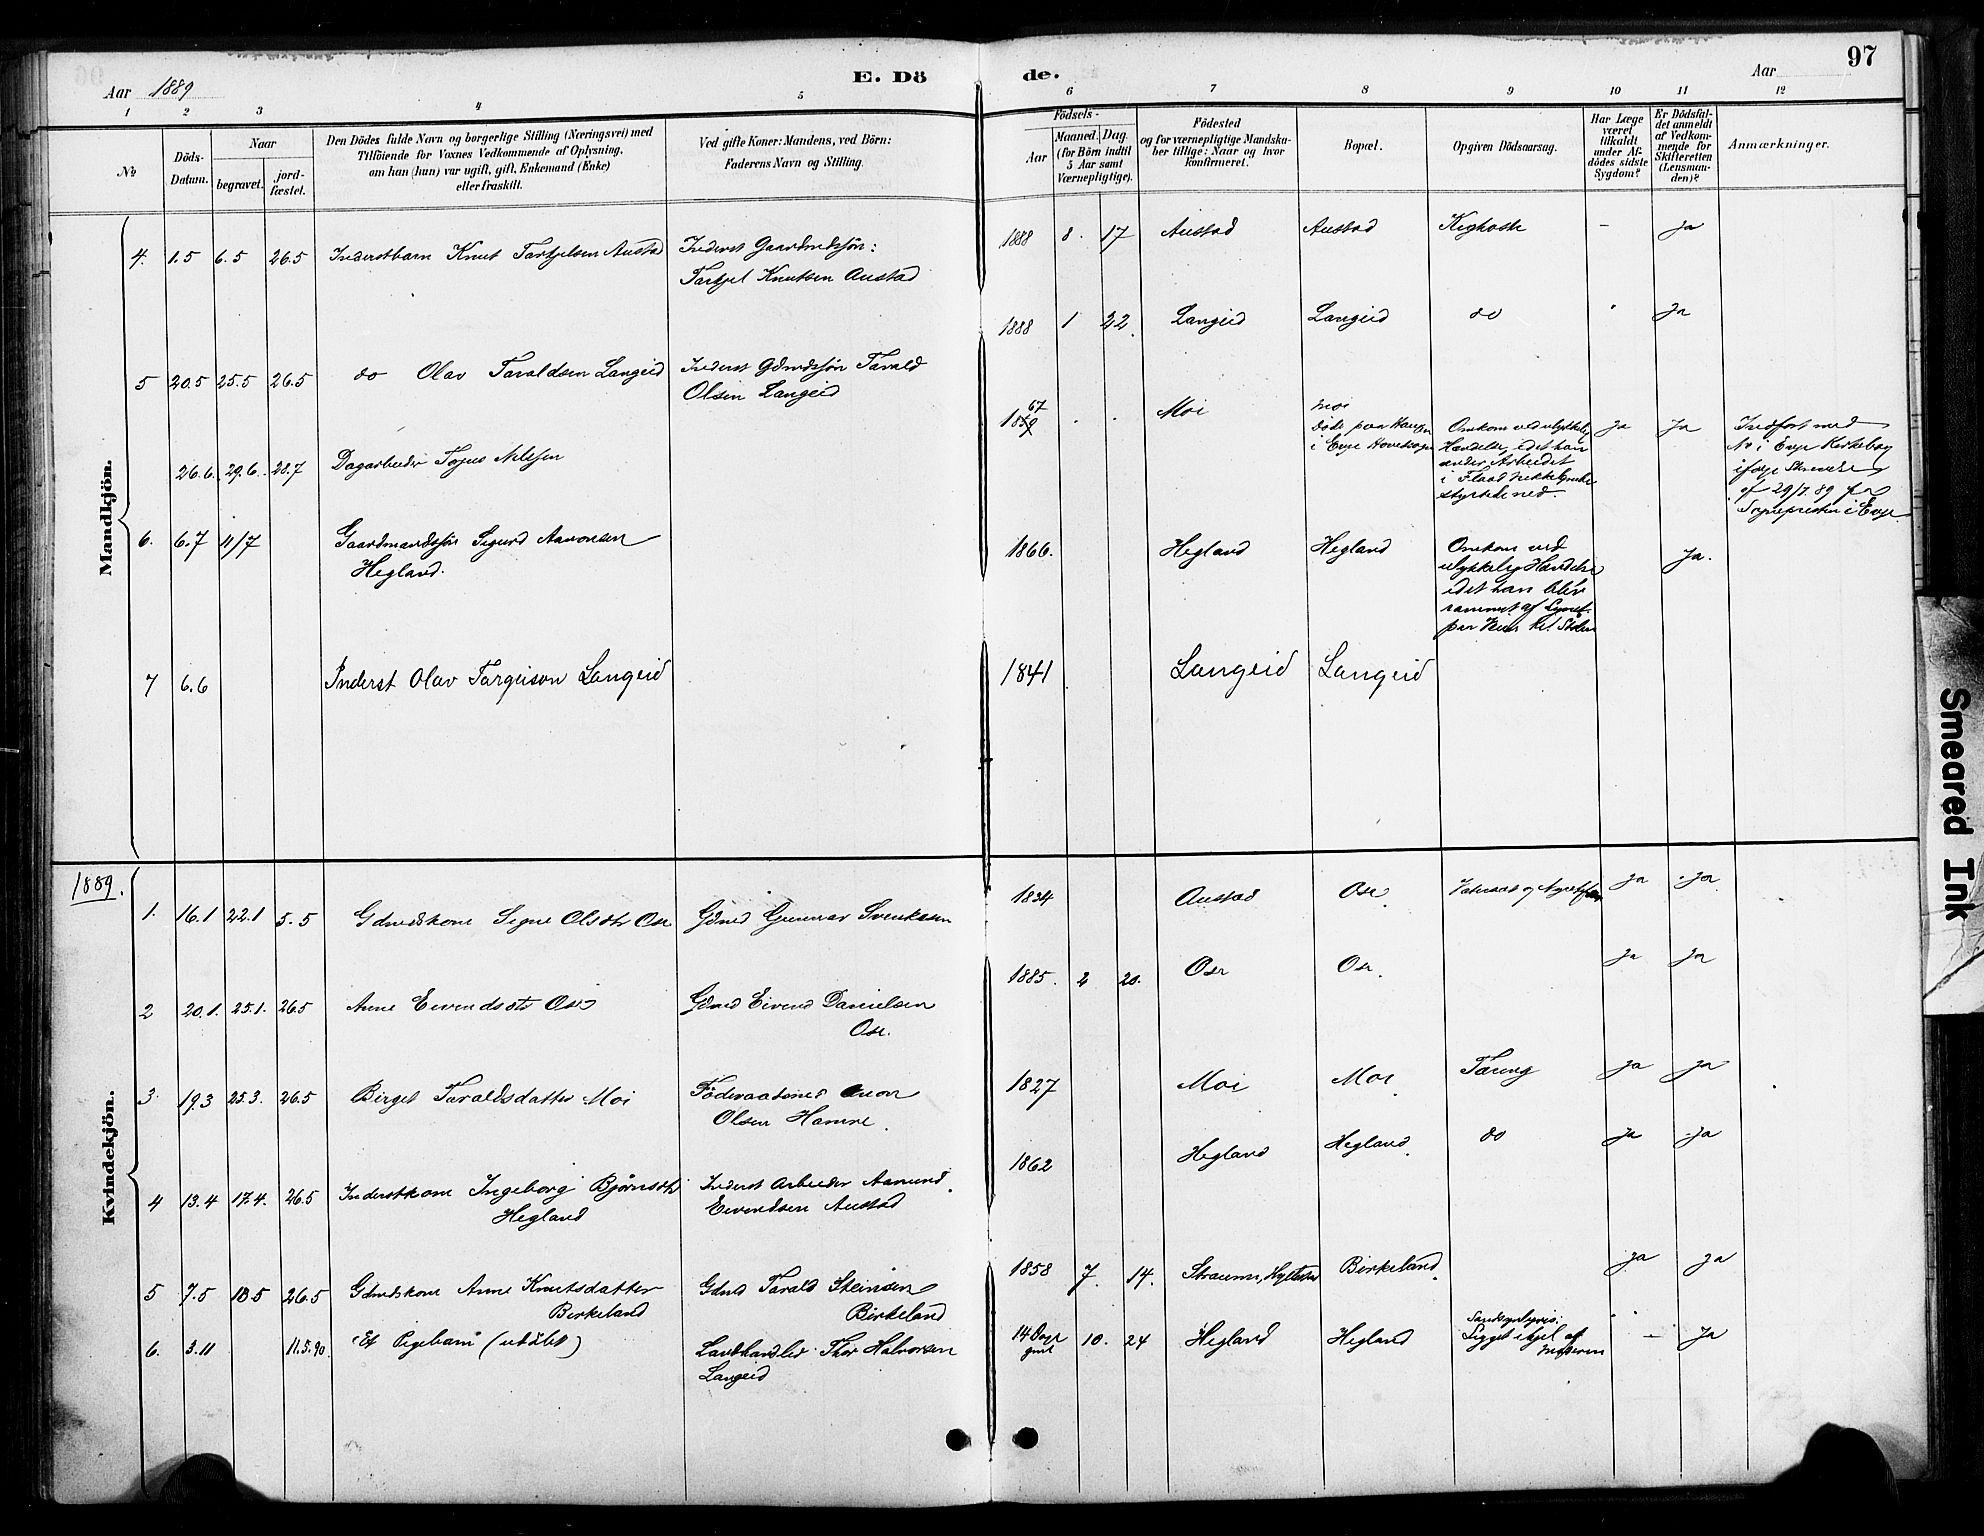 97
Aar 1889
E. Dö de.
Aar
1 2 3 4 5 6 7 8 9 10 11 12
No
Döds-Datum.
Naar
begravet.
jord-fæstet.
Den Dödes fulde Navn og borgerlige Stilling (Næringsvei) med
Tilföiende for Voxnes Vedkommende af Oplysning,
om han (hun) var ugift, gift, Enkemand (Enke)
eller fraskilt.
Ved gifte Koner: Mandens, ved Börn:
Faderens Navn og Stilling.
Födsels-
Aar
Maaned. Dag.
(for Börn indtil
5 Aar samt
Værnepligtige).
Födested
og for værnepligtige Mandska-
ber tillige: Naar og hvor
konfirmeret.
Bopæl.
Opgiven Dödsaarsag.
Har Læge
været
tilkaldt
under Af-
dödes sidste
Sygdom?
Er Dödsfal-
det anmeldt
af Vedkom-
mende for
Skifteretten
(Lensman-
den)?
Anmærkninger.
Mandkjön.
4. 1.5 6.5 26.5 Inderstbarn Knut Tarkjelsen Austad Inderst Gaardmdssøn:
Tarkjel Knutsen Austad
1888 8. 17 Austad Austad Kighoste - Ja
5 20.5 25.5 26.5 do Olav Taraldsen Langeid Inderst Gdmdssøn Tarald
Olsen Langeid
1888 1 22. Langeid Langeid do Ja
26.6. 29.6. 28.7 Dagarbeider Tojus Nilssen
67
1859 Moi Moi
Døde paa Haugen
i Evje Hovedsogn
Omkom ved ulykkelig
Hændelse, idet han
under Arbeidet
i Flaad Nikkelgrube
styrtede ned.
Ja Ja
Indført med
No i Evje Kirkebog
ifølge Skrivelse
af 29/7 89 fra
Sognepresten i Evje
6. 6.7 11/7 Gaardmandssøn Sigurd Aanonsen
Hegland.
1866. Hegland Hegland Omkom ved
ulykkelig Hændelse
idet han blev
rammet af Lynet
paa Heien
Ja.
7 6.6 Inderst Olav Targeison Langeid
1841 Langeid Langeid
1889.
Kvindekjön.
1. 16.1 22.1 5.5 Gdmdskone Signe Olsdtr Ose Gdmd Gunnar Svenksen
1834 Austad Ose Ja Ja
2 20.1. 25.1. 26.5 Anne Eivendsdtr Ose Gdmd Eivend Danielsen
Ose.
1885. 2 20. Ose Ose. Ja Ja
3. 19.3 25.3. 26.5 Birget Taraldsdatter Moi Föderaadsmd
Olsen Hamre.
1827 Moi Moi Tæring Ja Ja
4 13.4 17.4. 26.5 Inderstkone Ingeborg Bjørnsdtr
Hegland
Inderst Arbeider Aamund
Eivendsen Austad
1862 Hegland Hegland. do Ja Ja
5 7.5 18.5 26.5 Gdmdskone Anne Knutsdatter
Birkeland
Gdmd Tarald Steinsen
Birkeland
1858 7. 14. Straume, Birkeland. Ja Ja
6. 3.11 11.5.90. Et Pigebarn (udöbt) Landhandler Thor Halvorsen
Langeid
14 Dage
gml 10. 24 Hegland Hegland Sandsynligvis:
Ligget ihjel af
Moderen
- Ja
Smeared Ink